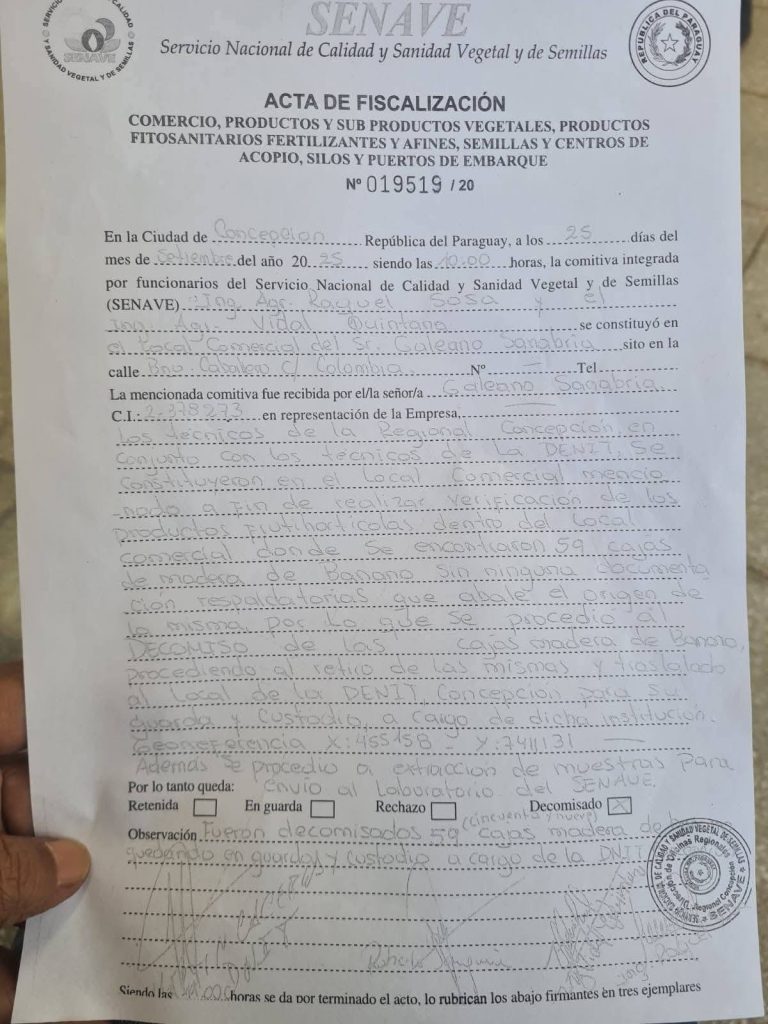 SENAVE
Servicio Nacional de Calidad y Sanidad Vegetal y de Semillas
SENAVE
REPÚBLICA DEL PARAGUAY
ACTA DE FISCALIZACIÓN
COMERCIO, PRODUCTOS Y SUB PRODUCTOS VEGETALES, PRODUCTOS
FITOSANITARIOS FERTILIZANTES Y AFINES, SEMILLAS Y CENTROS DE
ACOPIO, SILOS Y PUERTOS DE EMBARQUE
Nº 019519 / 20
En la Ciudad de Concepcion República del Paraguay, a los 25 días del
mes de Setiembre del año 2025 siendo las 10:00 horas, la comitiva integrada
por funcionarios del Servicio Nacional de Calidad y Sanidad Vegetal y de Semillas
(SENAVE) Ing. Agr. Raquel Sosa y el
Ing. Agr. Vidal Quintana se constituyó en
el Local Comercial del Sr. Galeano Sanabria sito en la
calle Bno Caballero c/ Colombia Nº — Tel
La mencionada comitiva fue recibida por el/la señor/a Galeano Sanabria
C.I.: 2.378273 en representación de la Empresa, —
Los tecnicos de la Regional Concepción en
conjunto con los tecnicos de la DENIT, se
constituyeron en el Local Comercial mencio
nado a fin de realizar verificación de los
productos frutihorticolas dentro del local
comercial donde se encontraron 59 cajas
de madera de Banano sin ninguna documenta
ción respaldatorias que abale el origen de
la misma, por lo que se procedio al
DECOMISO de las cajas madera de Banano,
procediendo al retiro de las mismas y traslado
al local de la DENIT Concepción para su
guarda y custodio, a cargo de dicha institución.
Georeferencia X: 455158 - Y: 7411131 —
Además se procedio a extraccion de muestras para
Por lo tanto queda: envio al Laboratorio del SENAVE.
Retenida En guarda Rechazo Decomisado X
(cincuenta y nueve)
Observación Fueron decomisados 59 cajas madera de
quedando en guarda y custodio a cargo de la DNIT
Siendo las 11:00 horas se da por terminado el acto, lo rubrican los abajo firmantes en tres ejemplares